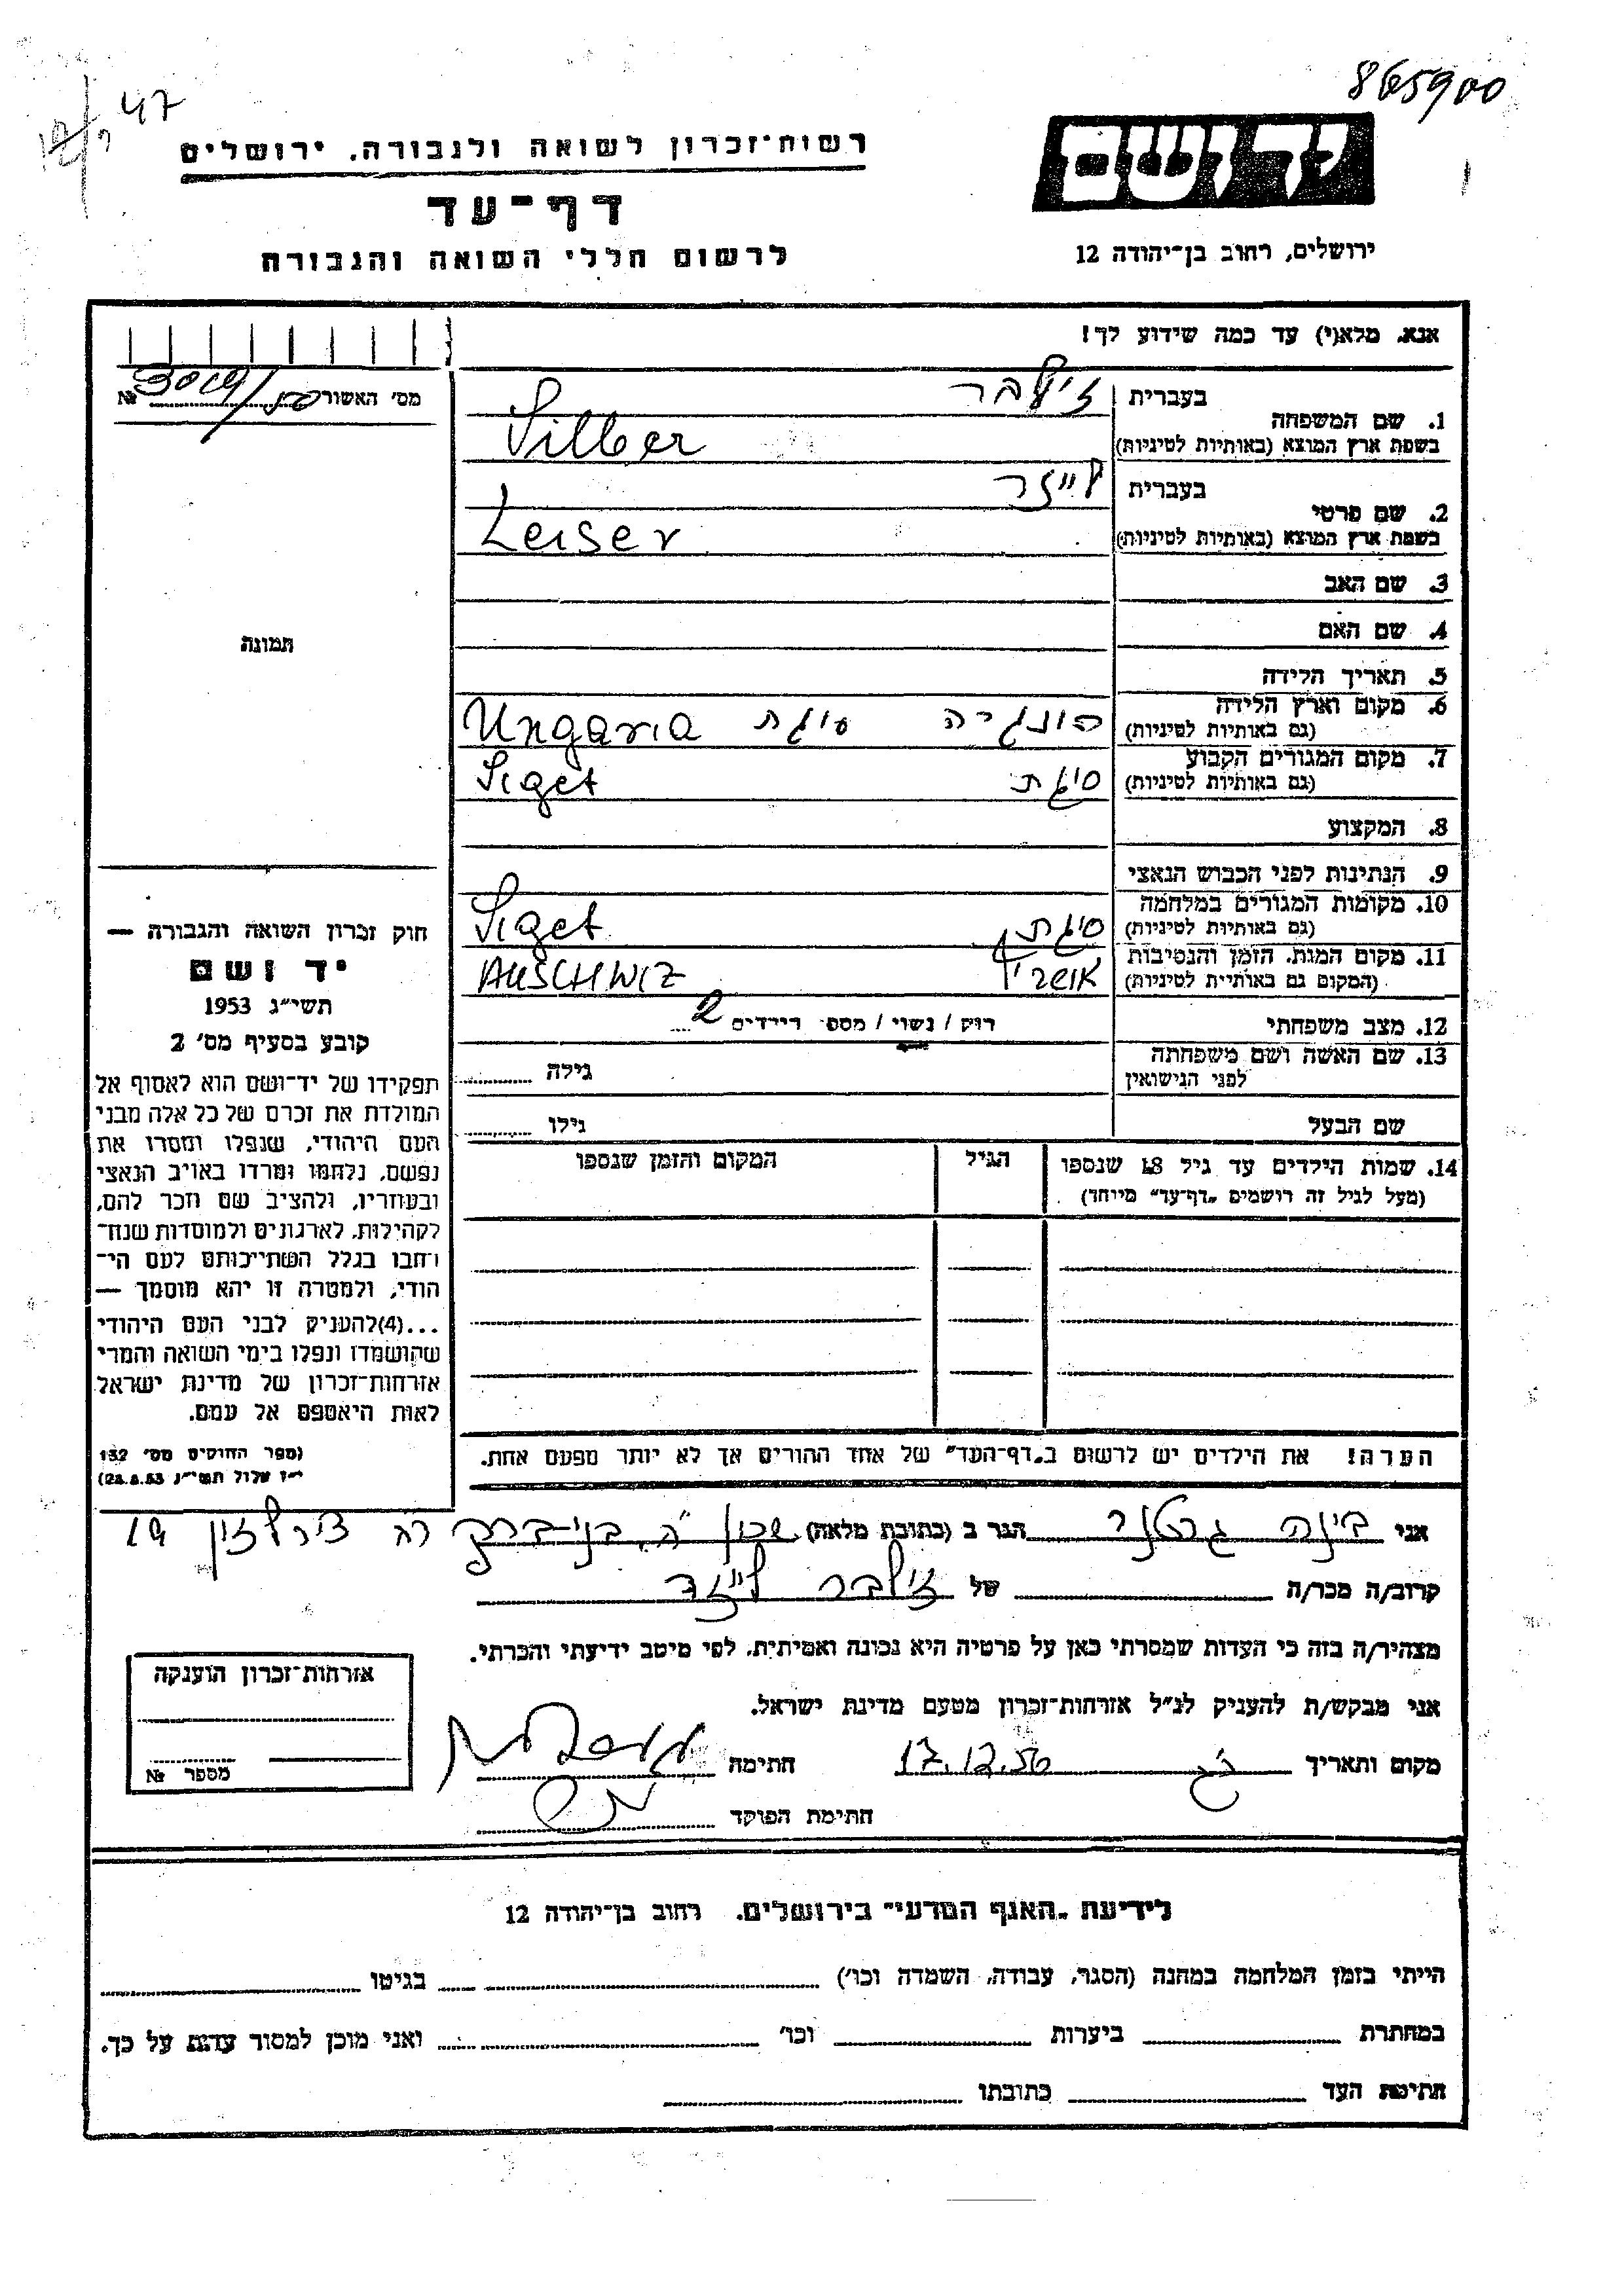 865900
47
רשות־זכרון לשואה ולגבורה. ירושלים
יד ושם
דף־עד
לרשום חללי השואה והגבורה
ירושלים, רחוב בן־יהודה 12
אנא, מלא(י) עד כמה שידוע לך!
מס' האשור №
1. שם המשפחה
בעברית זילבר
בשפת ארץ המוצא (באותיות לטיניות) Silber
2. שם פרטי
בעברית לייזר
בשפת ארץ המוצא (באותיות לטיניות) Leiser
3. שם האב
4. שם האם
תמונה
5. תאריך הלידה
6. מקום וארץ הלידה
(גם באותיות לטיניות) הונגריה סיגת Ungaria
7. מקום המגורים הקבוע
(גם באותיות לטיניות) סיגת Siget
8. המקצוע
9. הנתינות לפני הכבוש הנאצי
10. מקומות המגורים במלחמה
(גם באותיות לטיניות) סיגת Siget
11. מקום המות. הזמן והנסיבות
(המקום גם באותיות לטיניות) אושוויץ AUSCHWIZ
12. מצב משפחתי רווק / נשוי / מספר הילדים 2
13. שם האשה ושם משפחתה
לפני הנישואין גילה
שם הבעל גילו
14. שמות הילדים עד גיל 18 שנספו
(מעל לגיל זה רושמים "דף־עד" מיוחד)
הגיל
המקום והזמן שנספו
הערה! את הילדים יש לרשום ב"דף־העד" של אחד ההורים אך לא יותר מפעם אחת.
חוק זכרון השואה והגבורה —
יד ושם
תשי"ג 1953
קובע בסעיף מס' 2
תפקידו של יד־ושם הוא לאסוף אל
המולדת את זכרם של כל אלה מבני
העם היהודי, שנפלו ומסרו את
נפשם, נלחמו ומרדו באויב הנאצי
ובעוזריו, ולהציב שם וזכר להם,
לקהילות, לארגונים ולמוסדות שנח־
רבו בגלל השתייכותם לעם הי־
הודי, ולמטרה זו יהא מוסמך —
...(4)להעניק לבני העם היהודי
שהושמדו ונפלו בימי השואה והמרי
אזרחות־זכרון של מדינת ישראל
לאות היאספם אל עמם.
(ספר החוקים מס' 132
י"ז אלול תשי"ג 28.8.53)
אני בינה גרטנר הגר ב (כתובת מלאה) שכון ה, בני-ברק רח 19
קרוב/ה מכר/ה של זילבר לייזר
מצהיר/ה בזה כי העדות שמסרתי כאן על פרטיה היא נכונה ואמיתית, לפי מיטב ידיעתי והכרתי.
אני מבקש/ת להעניק לנ"ל אזרחות־זכרון מטעם מדינת ישראל.
מקום ותאריך 17.12.56 חתימה
חתימת הפוקד
אזרחות־זכרון הוענקה
מספר №
לידיעת "האגף המדעי" בירושלים. רחוב בן־יהודה 12
הייתי בזמן המלחמה במחנה (הסגר, עבודה, השמדה וכו') בגיטו
במחתרת ביערות וכו' ואני מוכן למסור עדות על כך.
חתימת העד כתובתו